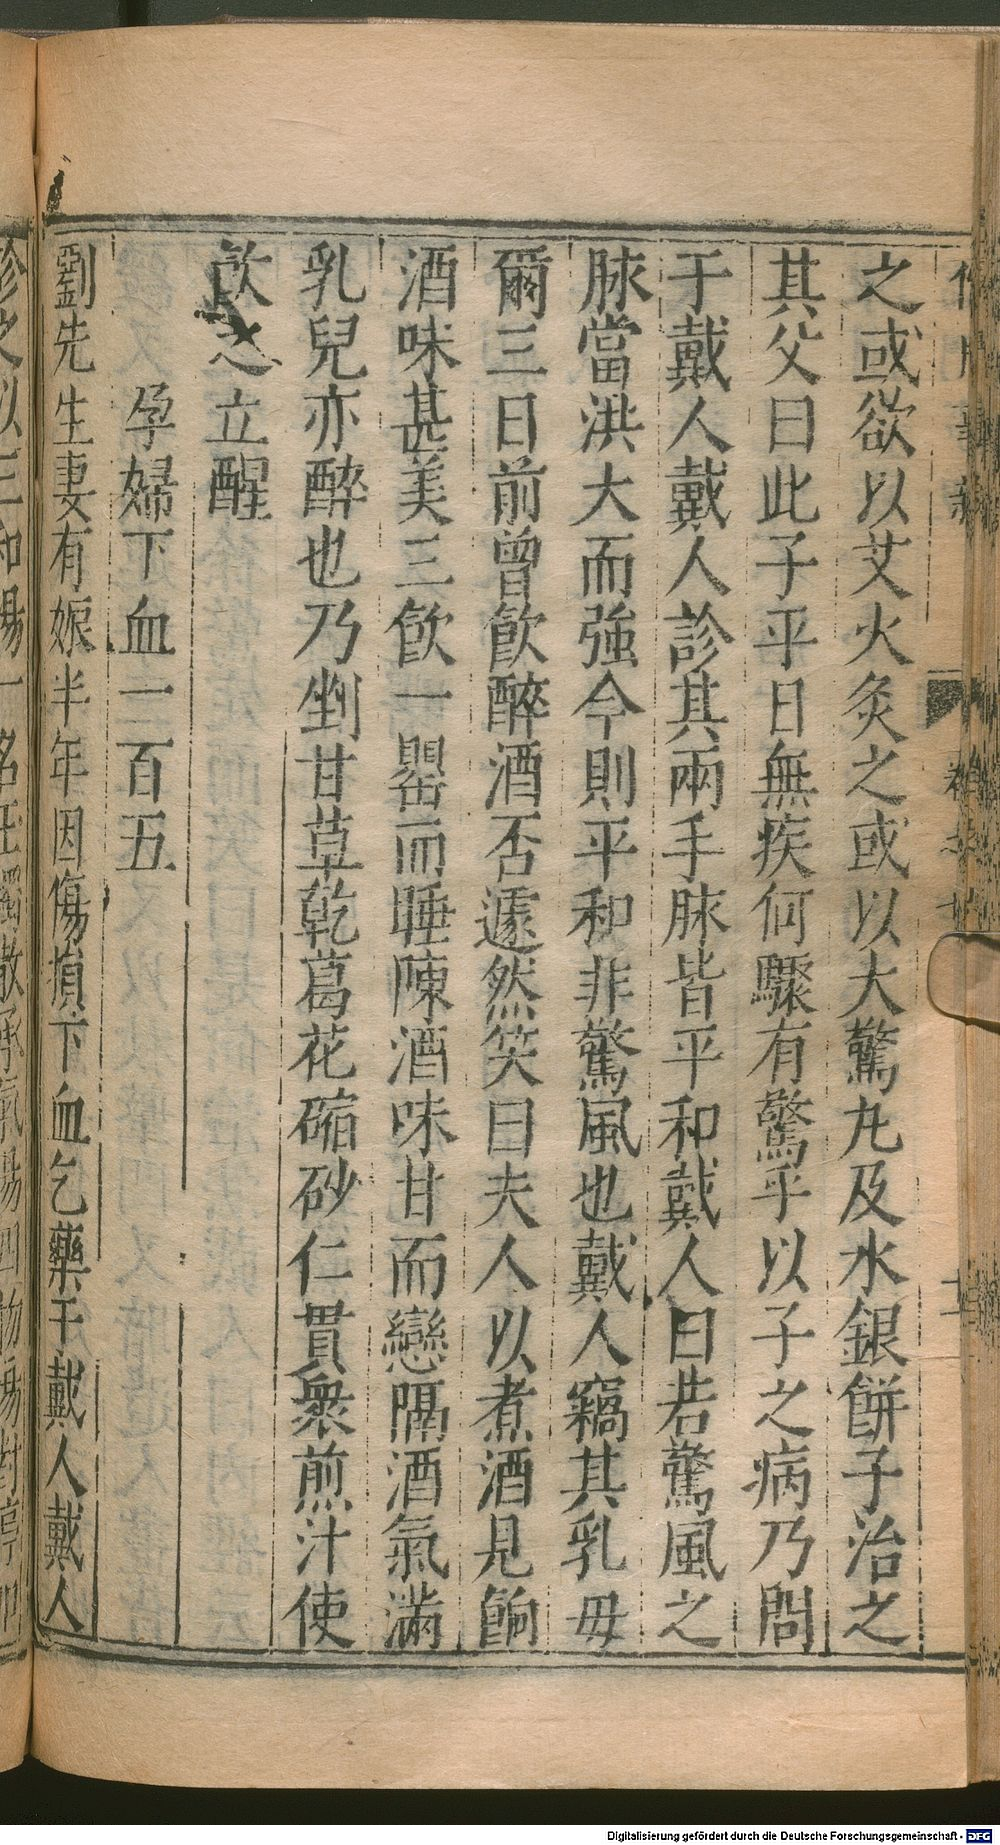 之或欲以艾火灸之或以大驚丸及水銀餅子治之
其父曰此子平日無疾何驟有驚乎以子之病乃問
于戴人戴人診其兩手脉皆平和戴人曰若驚風之
脉當洪大而強今則平和非驚風也戴人竊其乳母
爾三日前曾飲醉酒否遽然笑曰夫人以煮酒見餉
酒味甚美三飲一罌而睡陳酒味甘而戀隔酒氣滿
乳兒亦醉也乃剉甘草乾葛花砂仁貫衆煎汁使
飲之立醒
孕婦下血一百五
劉先生妻有娠半年因傷損下血乞藥于戴人戴人
診之以三和湯一名玉燭散承氣湯四物湯對停
Digitalisierung gefördert durch die Deutsche Forschungsgemeinschaft - DFG